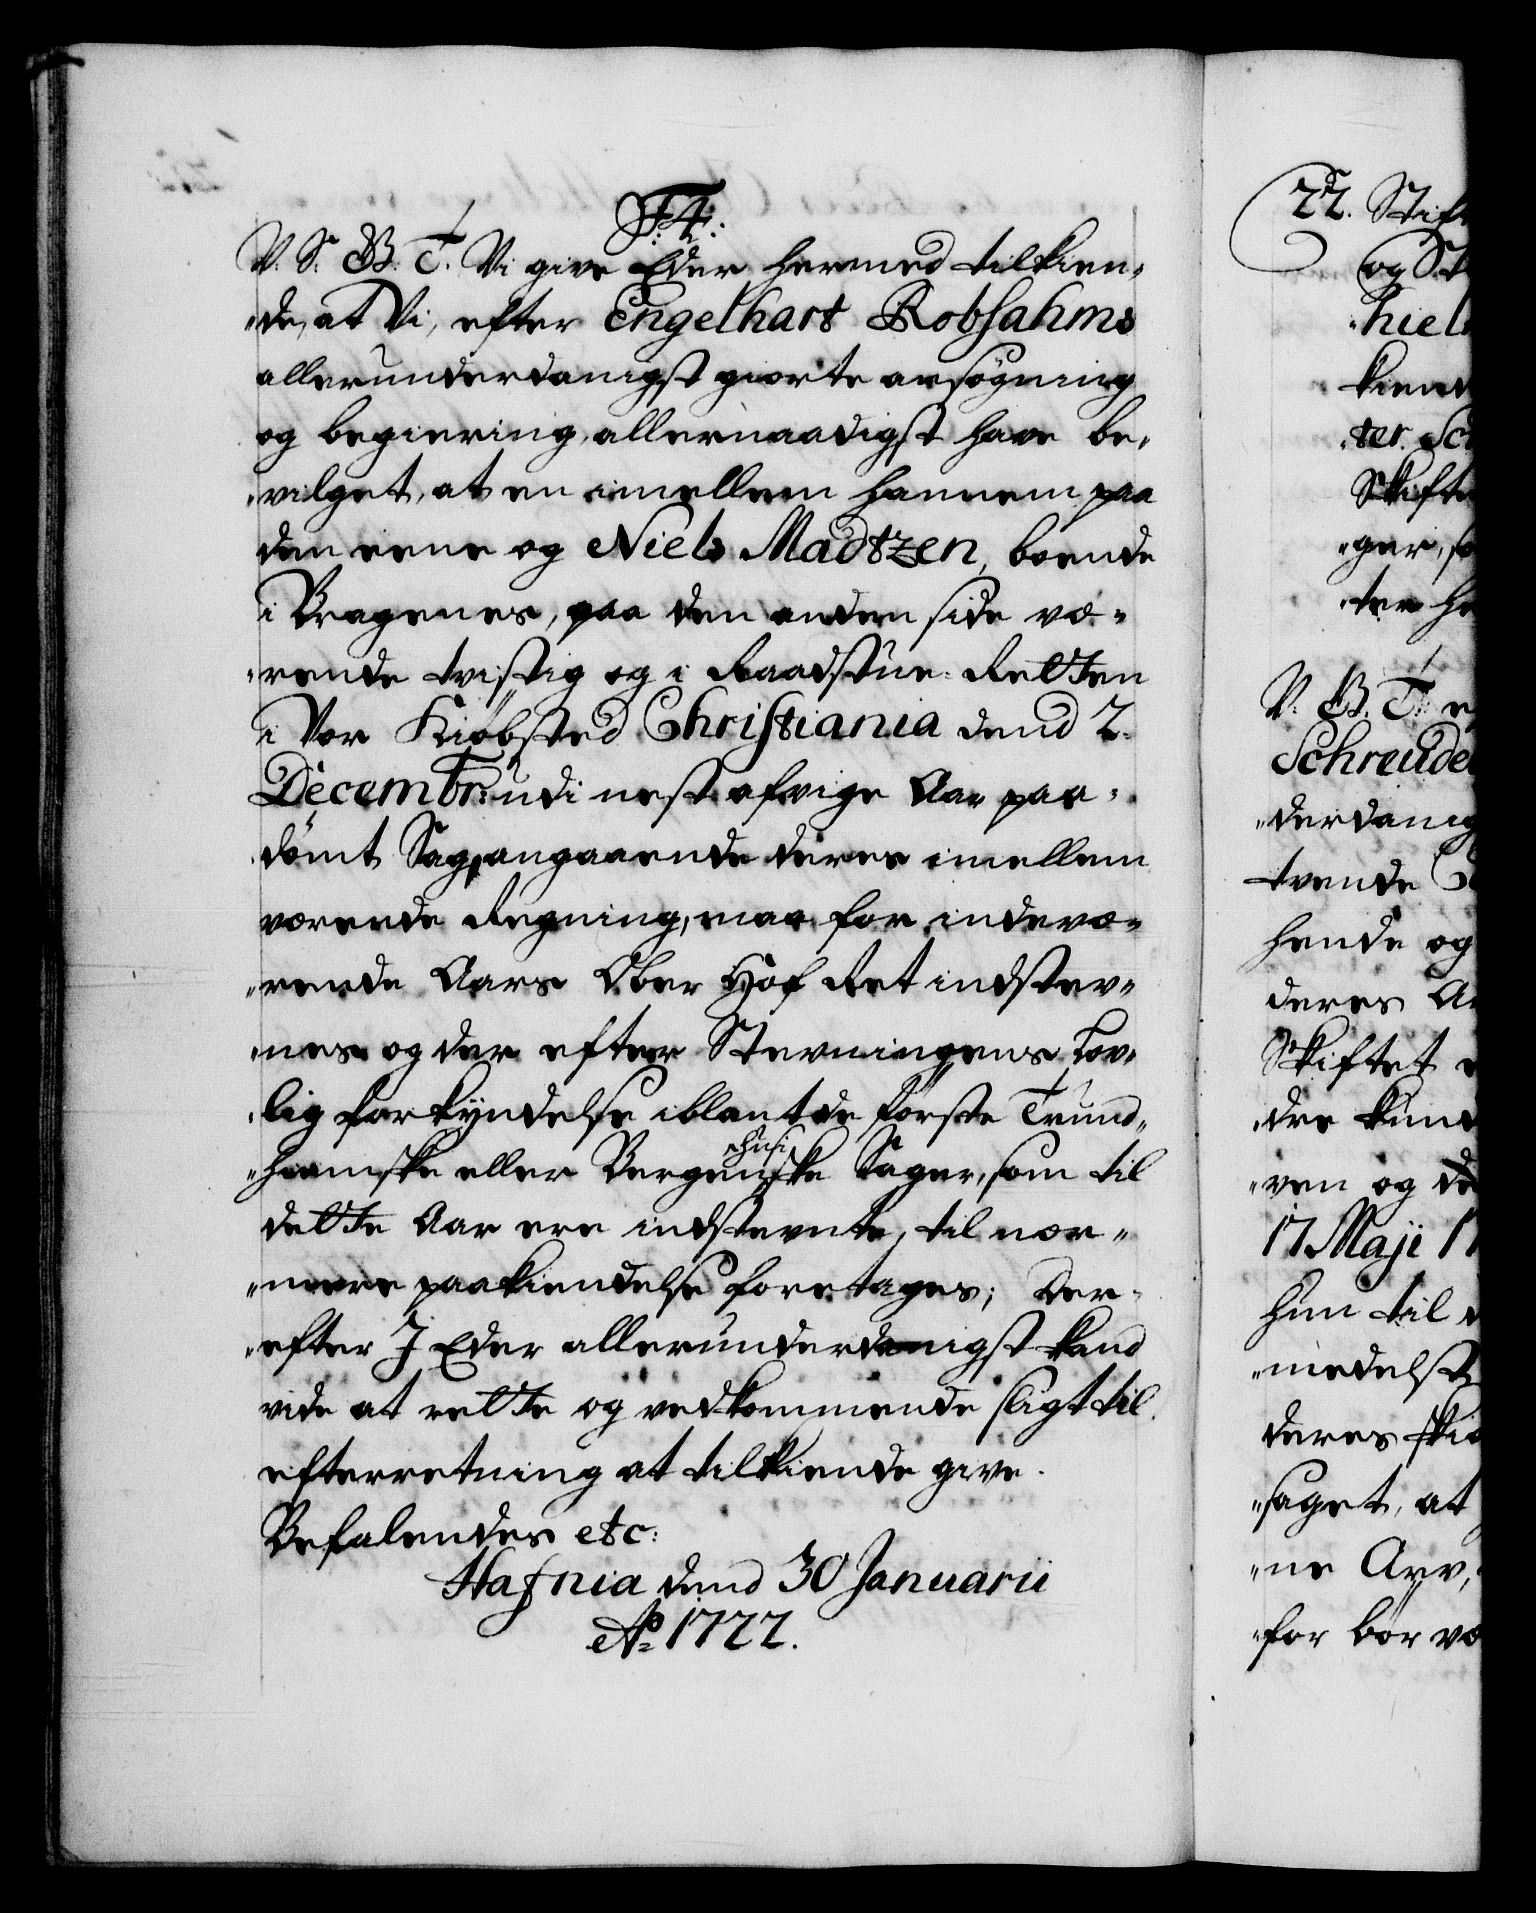 F. 4:
V: S: G: T: Vi give Eder hermed tilkien„
„de, at Vi, efter Engelhart Robsahms
allerunderdanigst giorte ansøgning
og begiering, allernaadigst have be„
„vilget, at en imellem hannem paa
den eene og Niels Madtzen, boende
i Bragenes, paa den anden side væ„
„rende tvistig og i Raadstue Retten
i Vor Kiøbsted Christiania dend 2.
Decembr: udi nest afvige Aar paa„
„dømt Sag, angaaende deres imellem
værende Regning, maa for indevæ„
„rende Aars Ober Hof Ret indstev„
„nes og der efter Stevningens Lov„
„lig forkyndelse iblant de første Trund„
„hiemske eller Bergenhusiske Sager, som til
dette Aar ere indstevnte, til nær„
„mere paakiendelse foretages; Der„
„efter I Eder allerunderdanigst kand
vide at rette og vedkommende sligt til
efterretning at tilkiende give.
Befalendes etc:
Hafnia dend 30 Januarii
Ao 1722.
22. Stif
og St
hiel
kiend
„ter Sch
Skifte
„ger, so
„ter he
V: G: T: e
Schreude
„derdanig
tvende
hende og
deres Ar
Skiftet
„dre kund
„ven og de
17 Maji 17
hun til
„medelst
deres ski
„saget, at
„ne Arv,
„for bør væ